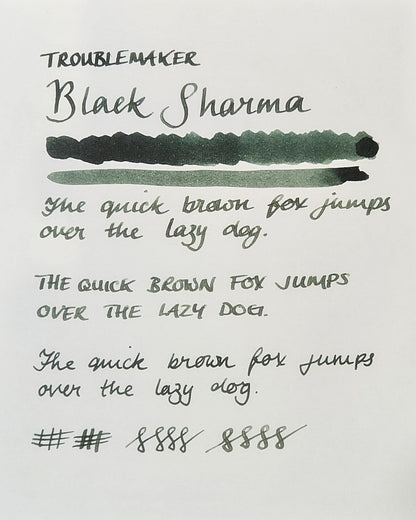 TROUBLEMAKER
Black Sharma
The quick brown fox jumps
over the lazy dog.
THE QUICK BROWN FOX JUMPS
OVER THE LAZY DOG.
The quick brown fox jumps
over the lazy dog.